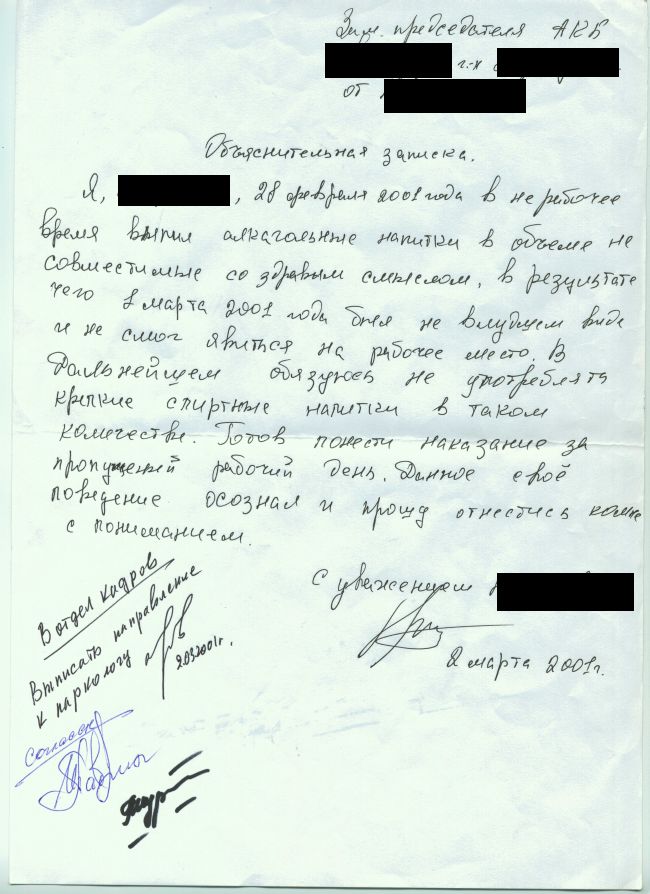 Зам. председателя АКБ
г-н
от
Объяснительная записка.
Я, , 28 февраля 2001 года в не рабочее
время выпил алкагольные напитки в объеме не
совместимые со здравым смыслом, в результате
чего 1 марта 2001 года был не в лудшем виде
и не смог явиться на рабочее место. В
Дальнейшем обязуюсь не употреблять
крепкие спиртные напитки в таком
количестве. Готов понести наказание за
пропущеный рабочий день. Данное своё
поведение осознал и прошу отнестись комне
с пониманием.
С уважением
2 марта 2001г.
В отдел кадров
Выписать направление
к наркологу
2032001г.
согласен